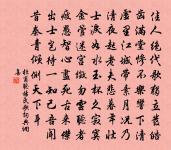 佳人絕代歌獨立發皓
齒滿堂慘不樂響下清
虛里江城帶素月況乃
清夜起老夫悲暮年壯
士淚如水玉杯久寂寞
金管迷宮徵勿云聽者
疲愚智心盡死古來傑
出士豈待一知己吾聞
昔秦青傾側天下耳
杜甫聽楊氏歌